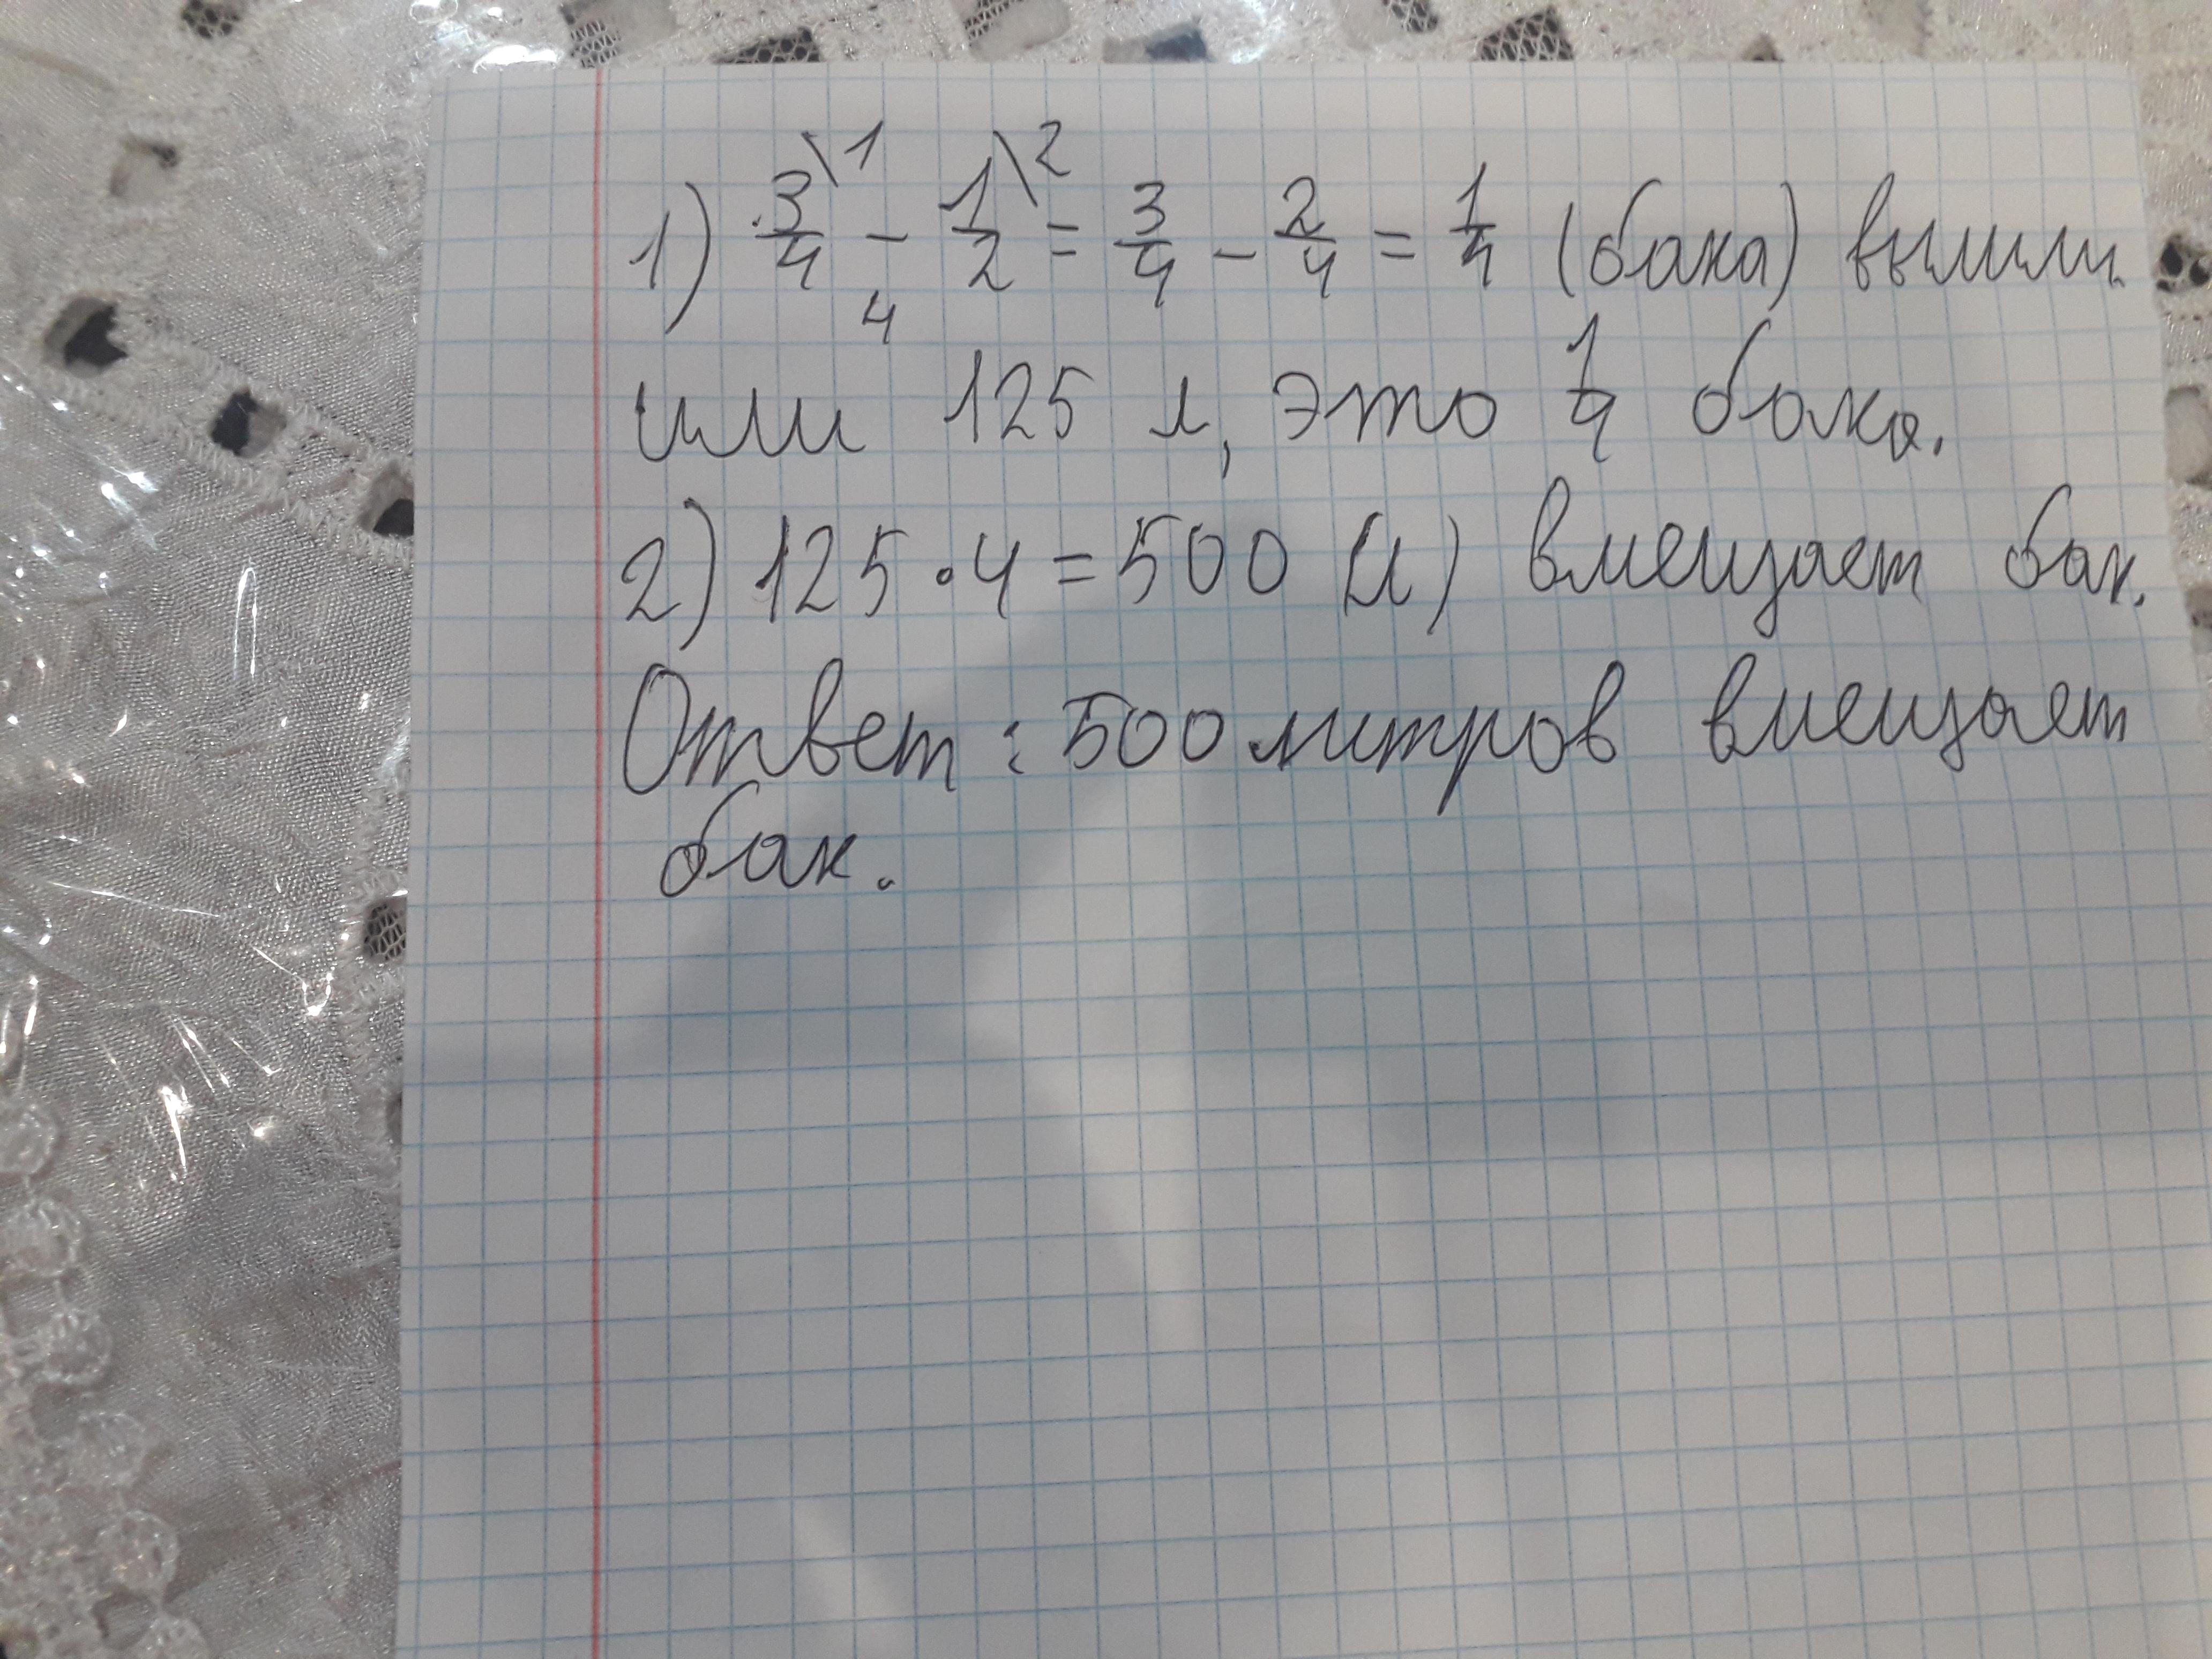 1) 3/4\1 - 1/2\2 = 3/4 - 2/4 = 1/4 (бака) вылили
4
или 125 л, это 1/4 бака.
2) 125 · 4 = 500 (л) вмещает бак.
Ответ: 500 литров вмещает
бак.